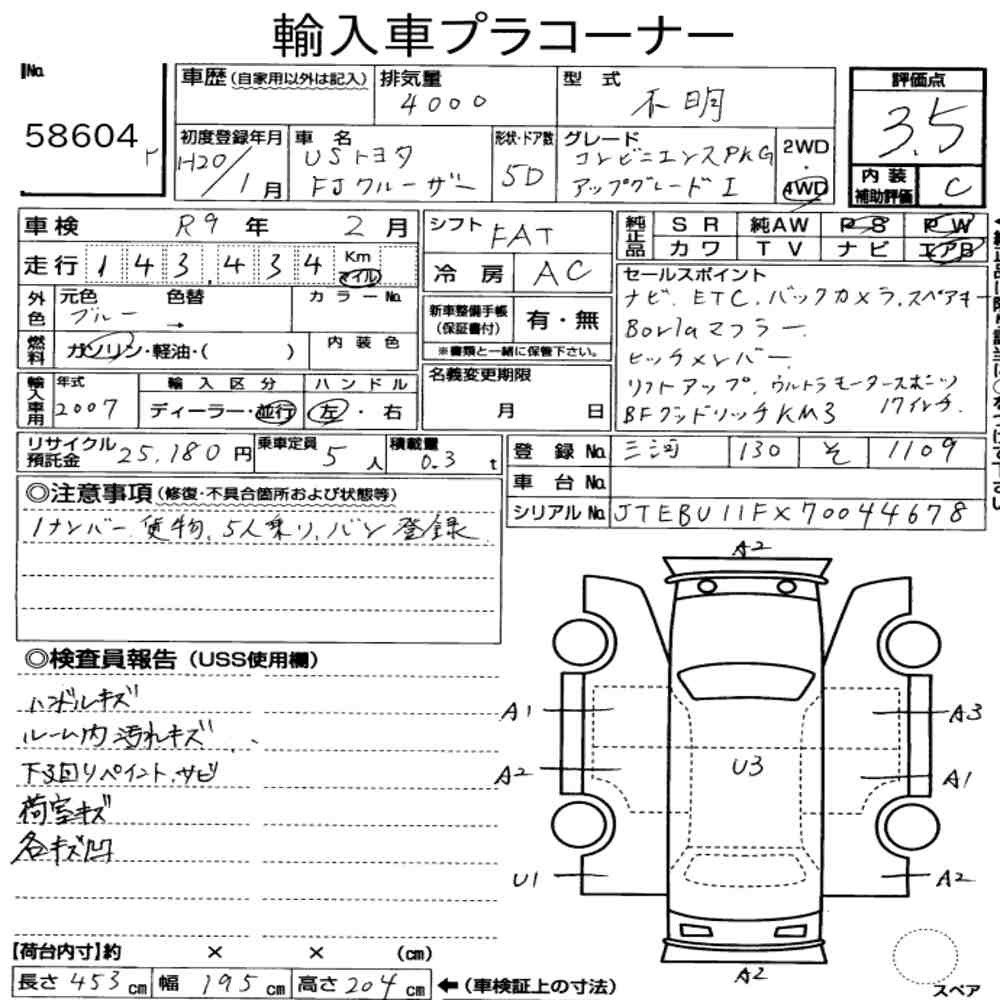 輸入車プラコーナー
No.
58604
車歴(自家用以外は記入)
排気量
4000
型 式
不明
評価点
3.5
内装補助評価
C
初度登録年月
H20/1月
車 名
USトヨタ
FJクルーザー
形状・ドア数
5D
グレード
コンビニエンスPKG
アップグレードI
2WD
4WD
車検 R9 年 2 月
走行 143,434 Km マイル
シフト FAT
冷房 AC
純正品 SR 純AW PS PW
カワ TV ナビ エアB
外色 元色 ブルー 色替 → カラーNo.
燃料 ガソリン・軽油・( ) 内装色
新車整備手帳(保証書付) 有・無
※書類と一緒に保管下さい。
セールスポイント
ナビ、ETC、バックカメラ、スペアキー
Borlaマフラー
ヒッチメンバー
リフトアップ、ウルトラモータースポーツ
BFグッドリッチKM3 17インチ
輸入車用 年式 2007
輸入区分 ディーラー・並行
ハンドル 左・右
名義変更期限
月 日
リサイクル預託金 25,180円
乗車定員 5人
積載量 0.3t
登録No. 三河 130 そ 1109
車台No.
シリアルNo. JTEBU11FX70044678
◎注意事項(修復・不具合箇所および状態等)
1ナンバー貨物、5人乗り、バン登録
◎検査員報告(USS使用欄)
ハンドルキズ
ルーム内汚れキズ
下回りペイント、サビ
荷室キズ
各キズ凹
A2
A1
A3
A2
U3
A1
U1
A2
A2
スペア
【荷台内寸】約 × × (cm)
長さ 453cm 幅 195cm 高さ 204cm ←(車検証上の寸法)